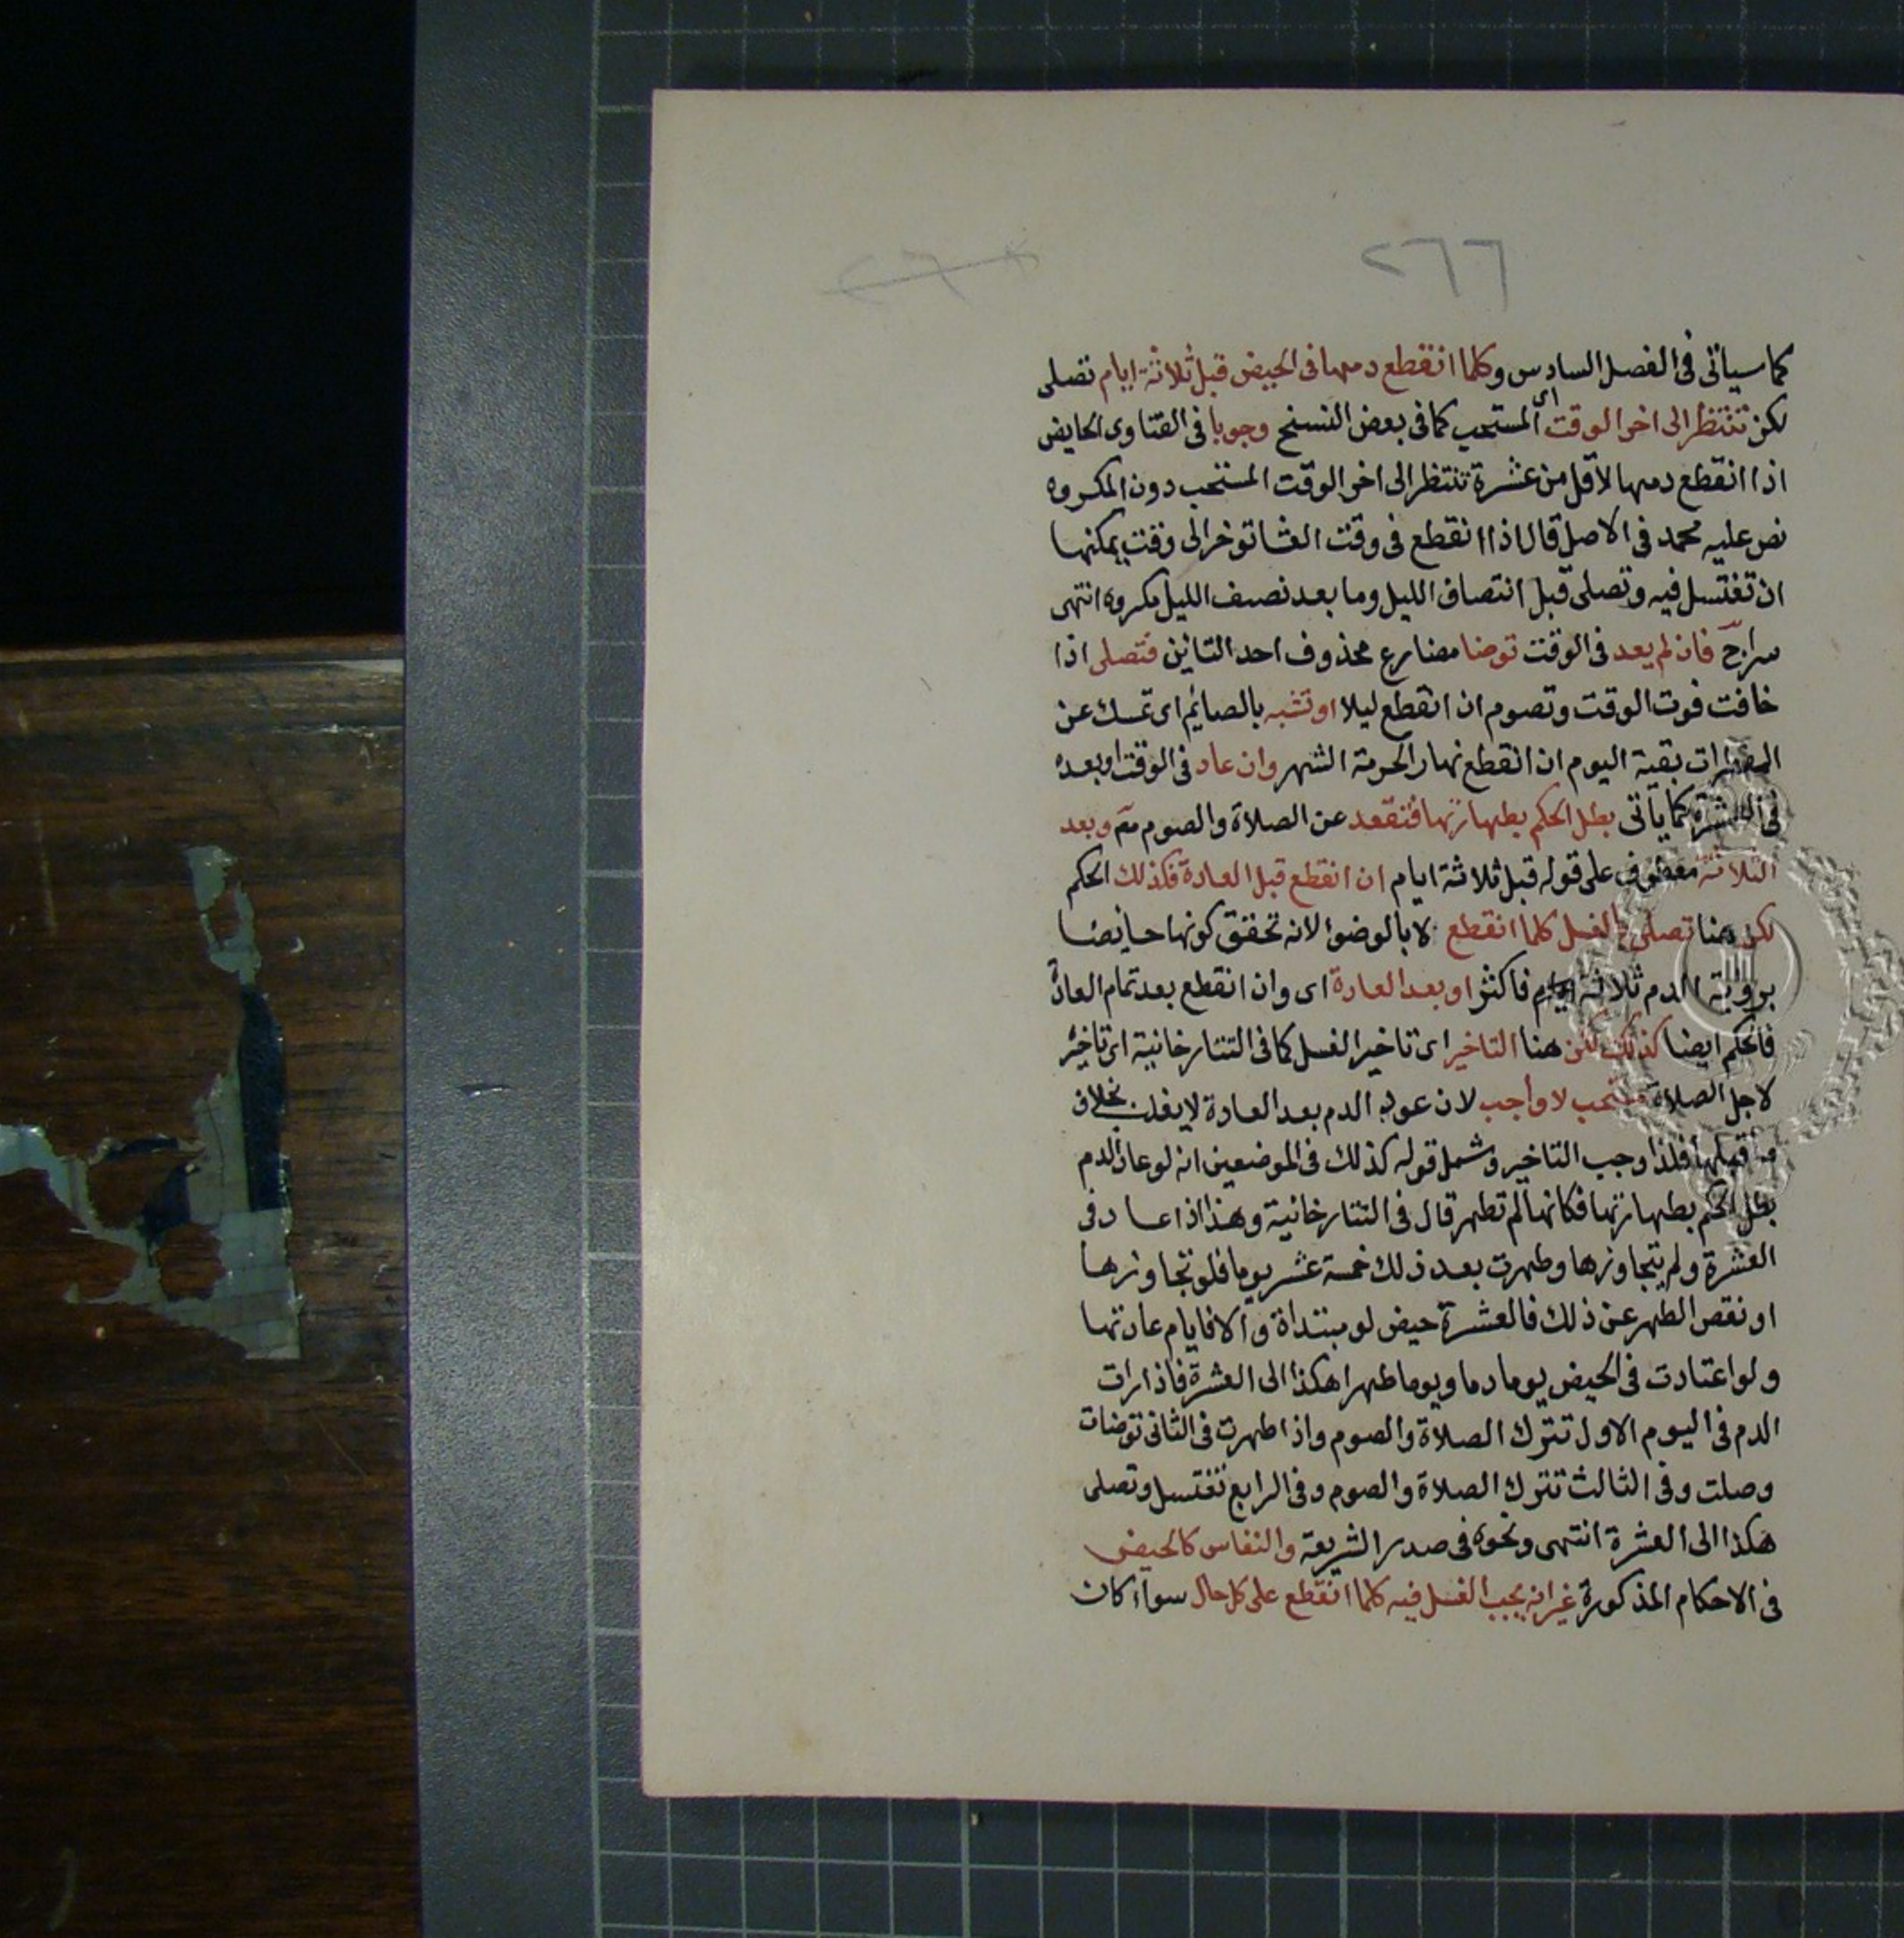 ٢٦٦
كما سياتى فى الفصل السادس وكلما انقطع دمها فى الحيض قبل ثلاثة ايام تصلى
لكن تنتظر الى اخر الوقت اى المستحب كما فى بعض النسخ وجوبا فى الفتاوى الحايض
اذا انقطع دمها لاقل من عشرة تنتظر الى اخر الوقت المستحب دون المكروه
نص عليه محمد فى الاصل قال اذا انقطع فى وقت العشا توخر الى وقت يمكنها
ان تغتسل فيه وتصلى قبل انتصاف الليل وما بعد نصف الليل مكروه انتهى
سراج فان لم يعد فى الوقت توضا مضارع محذوف احد التائين فتصلى اذا
خافت فوت الوقت وتصوم ان انقطع ليلا او تشبه بالصائم اى تمسك عن
المفطرات بقية اليوم ان انقطع نهارا لحرمة الشهر وان عاد فى الوقت او بعده
فى العشرة كما يأتى بطل الحكم بطهارتها فتقعد عن الصلاة والصوم وبعد
الثلاثة معطوف على قوله قبل ثلاثة ايام ان انقطع قبل العادة فكذلك الحكم
لكن هنا تصلى بالغسل كلما انقطع لا بالوضوء لانه تحقق كونها حايضا
بروية الدم ثلاثة ايام فاكثر او بعد العادة اى وان انقطع بعد تمام العادة
فالحكم ايضا كذلك لكن هنا التاخير اى تاخير الغسل كما فى التتارخانية اى تاخيره
لاجل الصلاة مستحب لا واجب لان عود الدم بعد العادة لا يغلب بخلاف
ما قبلها فلذا وجب التاخير وشمل قوله كذلك فى الموضعين انه لو عاد الدم
بطل الحكم بطهارتها فكانها لم تطهر قال فى التتارخانية وهذا اذا عاد فى
العشرة ولم يتجاوزها وطهرت بعد ذلك خمسة عشر يوما فلو تجاوزها
او نقص الطهر عن ذلك فالعشرة حيض لو مبتداة والا فايام عادتها
ولو اعتادت فى الحيض يوما دما ويوما طهرا هكذا الى العشرة فاذا رات
الدم فى اليوم الاول تترك الصلاة والصوم واذا طهرت فى الثانى توضات
وصلت وفى الثالث تترك الصلاة والصوم وفى الرابع تغتسل وتصلى
هكذا الى العشرة انتهى ونحوه فى صدر الشريعة والنفاس كالحيض
فى الاحكام المذكورة غير انه يجب الغسل فيه كلما انقطع على كل حال سواء كان